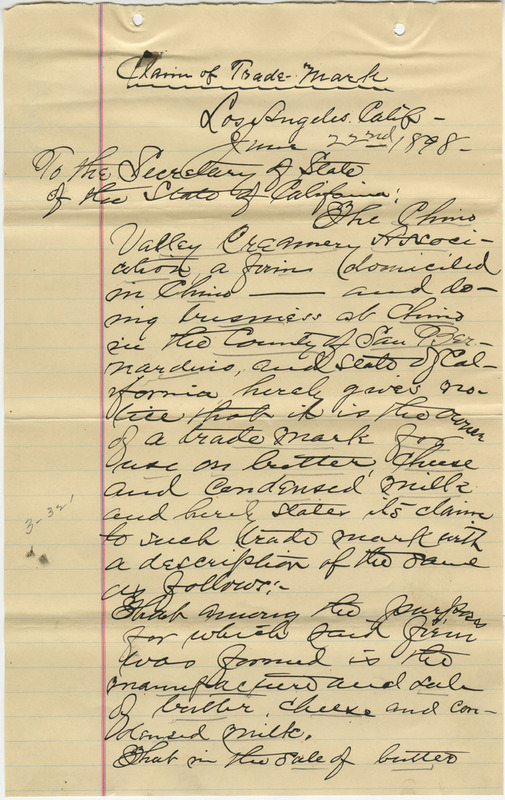 Claim of Trade-Mark
Los Angeles, Calif-
June 22nd, 1898-
To the Secretary of State
of the State of California:
The Chino
Valley Creamery Associ-
ation, a firm domiciled
in Chino — and do-
ing business at Chino
in the County of San Ber-
nardino, and State of Cal-
ifornia, herely gives no-
tice that it is the owner
of a trade mark for
use on butter, cheese
and condensed milk
and herely states its claim
to such trade mark with
a description of the same
as follows:-
That among the purposes
for which said firm
was formed is the
manufacture and sale
of butter, cheese and con-
densed milk.
That in the sale of butter